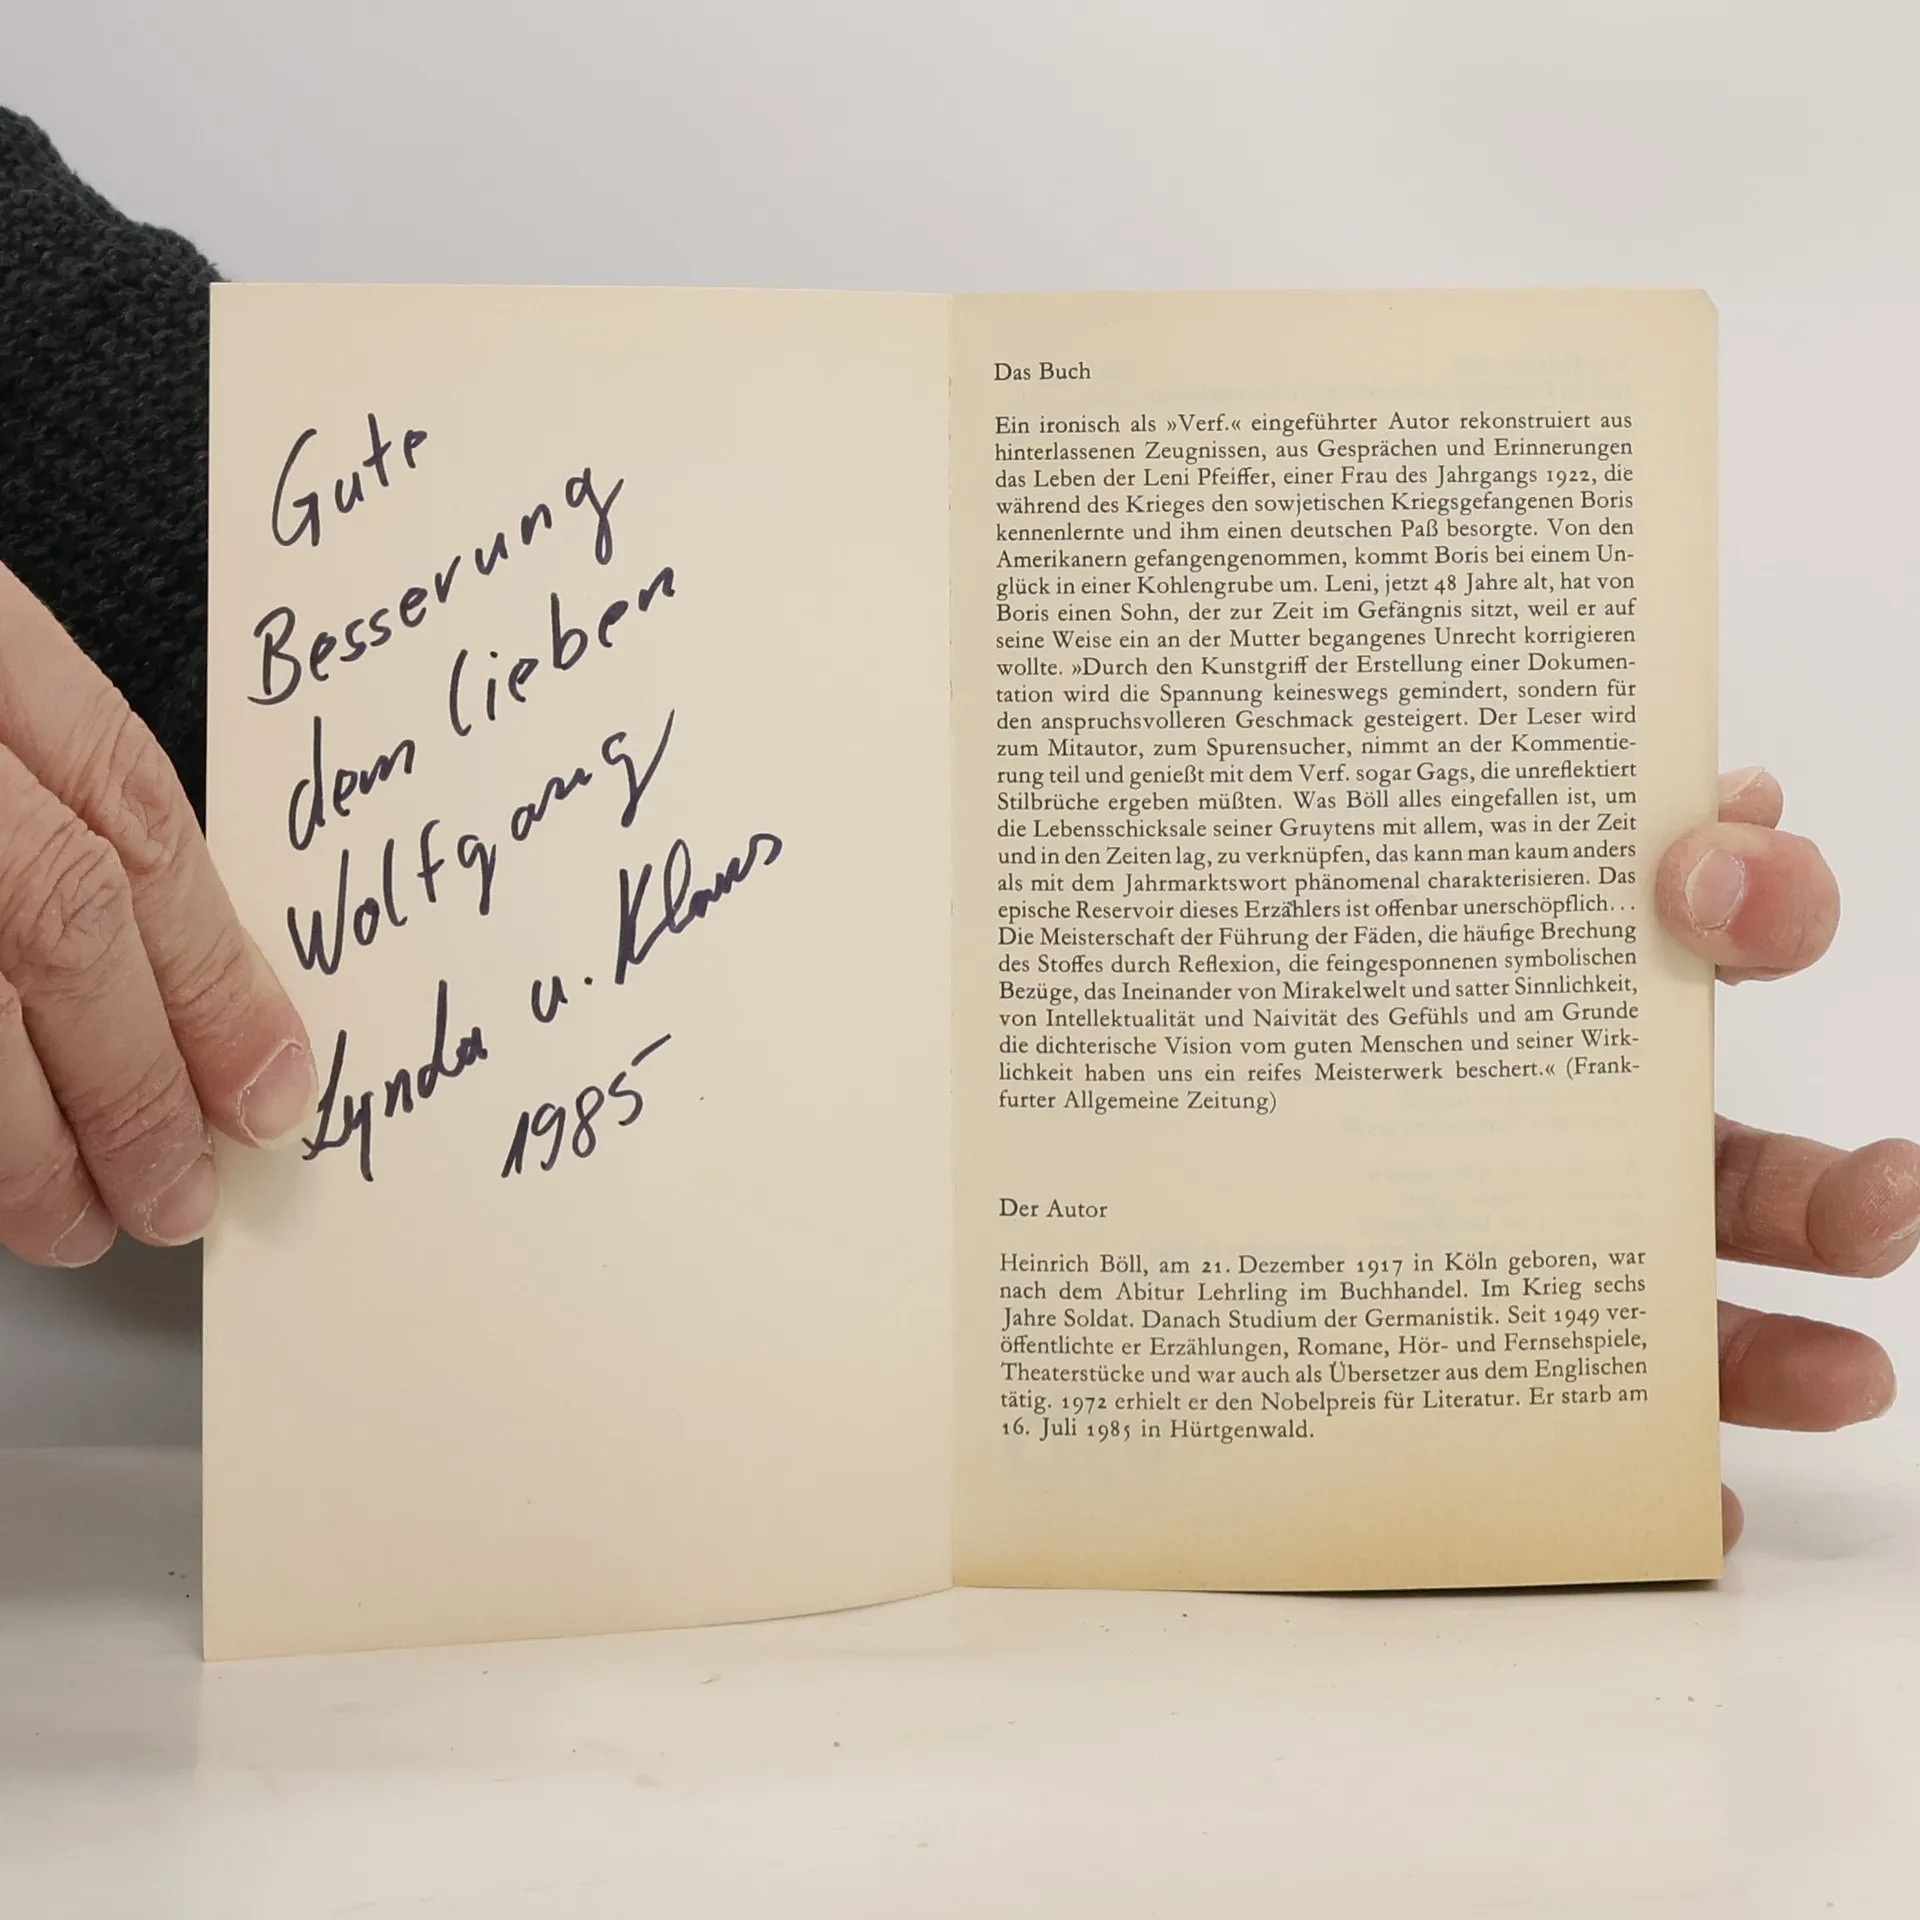 Gute
Besserung
dem lieben
Wolfgang
Lynda u. Klaus
1985
Das Buch
Ein ironisch als »Verf.« eingeführter Autor rekonstruiert aus
hinterlassenen Zeugnissen, aus Gesprächen und Erinnerungen
das Leben der Leni Pfeiffer, einer Frau des Jahrgangs 1922, die
während des Krieges den sowjetischen Kriegsgefangenen Boris
kennenlernte und ihm einen deutschen Paß besorgte. Von den
Amerikanern gefangengenommen, kommt Boris bei einem Un-
glück in einer Kohlengrube um. Leni, jetzt 48 Jahre alt, hat von
Boris einen Sohn, der zur Zeit im Gefängnis sitzt, weil er auf
seine Weise ein an der Mutter begangenes Unrecht korrigieren
wollte. »Durch den Kunstgriff der Erstellung einer Dokumen-
tation wird die Spannung keineswegs gemindert, sondern für
den anspruchsvolleren Geschmack gesteigert. Der Leser wird
zum Mitautor, zum Spurensucher, nimmt an der Kommentie-
rung teil und genießt mit dem Verf. sogar Gags, die unreflektiert
Stilbrüche ergeben müßten. Was Böll alles eingefallen ist, um
die Lebensschicksale seiner Gruytens mit allem, was in der Zeit
und in den Zeiten lag, zu verknüpfen, das kann man kaum anders
als mit dem Jahrmarktswort phänomenal charakterisieren. Das
epische Reservoir dieses Erzählers ist offenbar unerschöpflich...
Die Meisterschaft der Führung der Fäden, die häufige Brechung
des Stoffes durch Reflexion, die feingesponnenen symbolischen
Bezüge, das Ineinander von Mirakelwelt und satter Sinnlichkeit,
von Intellektualität und Naivität des Gefühls und am Grunde
die dichterische Vision vom guten Menschen und seiner Wirk-
lichkeit haben uns ein reifes Meisterwerk beschert.« (Frank-
furter Allgemeine Zeitung)
Der Autor
Heinrich Böll, am 21. Dezember 1917 in Köln geboren, war
nach dem Abitur Lehrling im Buchhandel. Im Krieg sechs
Jahre Soldat. Danach Studium der Germanistik. Seit 1949 ver-
öffentlichte er Erzählungen, Romane, Hör- und Fernsehspiele,
Theaterstücke und war auch als Übersetzer aus dem Englischen
tätig. 1972 erhielt er den Nobelpreis für Literatur. Er starb am
16. Juli 1985 in Hürtgenwald.